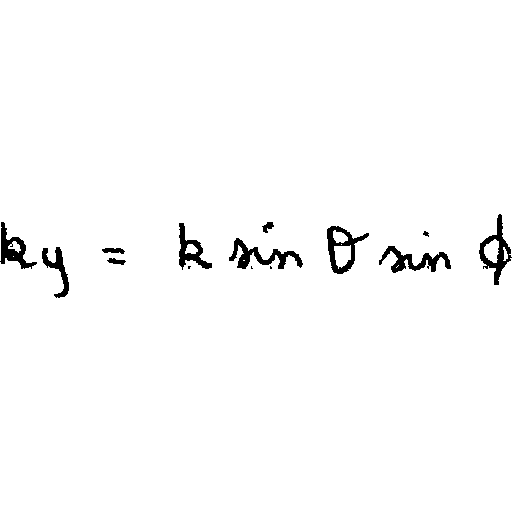 ky = k sin θ sin ϕ